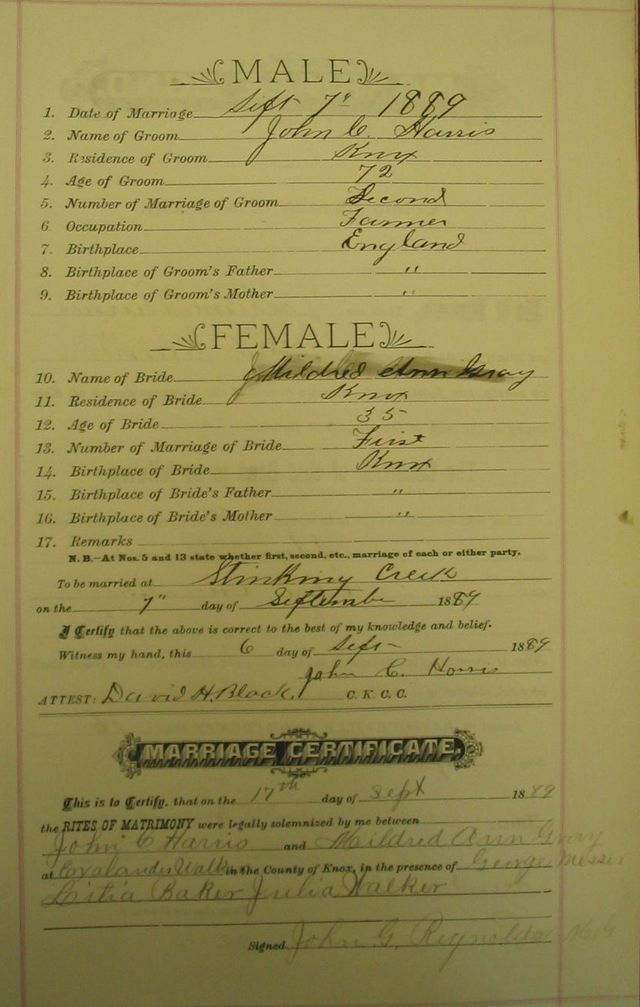 MALE
1. Date of Marriage Sept 7" 1889
2. Name of Groom John C. Harris
3. Residence of Groom Knox
4. Age of Groom 72
5. Number of Marriage of Groom Second
6. Occupation Farmer
7. Birthplace England
8. Birthplace of Groom's Father "
9. Birthplace of Groom's Mother "
FEMALE
10. Name of Bride Mildred Ann Gray
11. Residence of Bride Knox
12. Age of Bride 35
13. Number of Marriage of Bride First
14. Birthplace of Bride Knox
15. Birthplace of Bride's Father "
16. Birthplace of Bride's Mother "
17. Remarks
N. B.—At Nos. 5 and 13 state whether first, second, etc., marriage of each or either party.
To be married at Stinking Creek
on the 7" day of September 1889
I Certify that the above is correct to the best of my knowledge and belief.
Witness my hand, this 6 day of Sept 1889
John C. Harris
ATTEST: David H. Black, C. K. C. C.
MARRIAGE CERTIFICATE.
This is to Certify, that on the 17th day of Sept 1889
the RITES OF MATRIMONY were legally solemnized by me between
John C Harris and Mildred Ann Gray
at in the County of Knox, in the presence of George Messer
Litia Baker Julia Walker
Signed John G. Reynolds